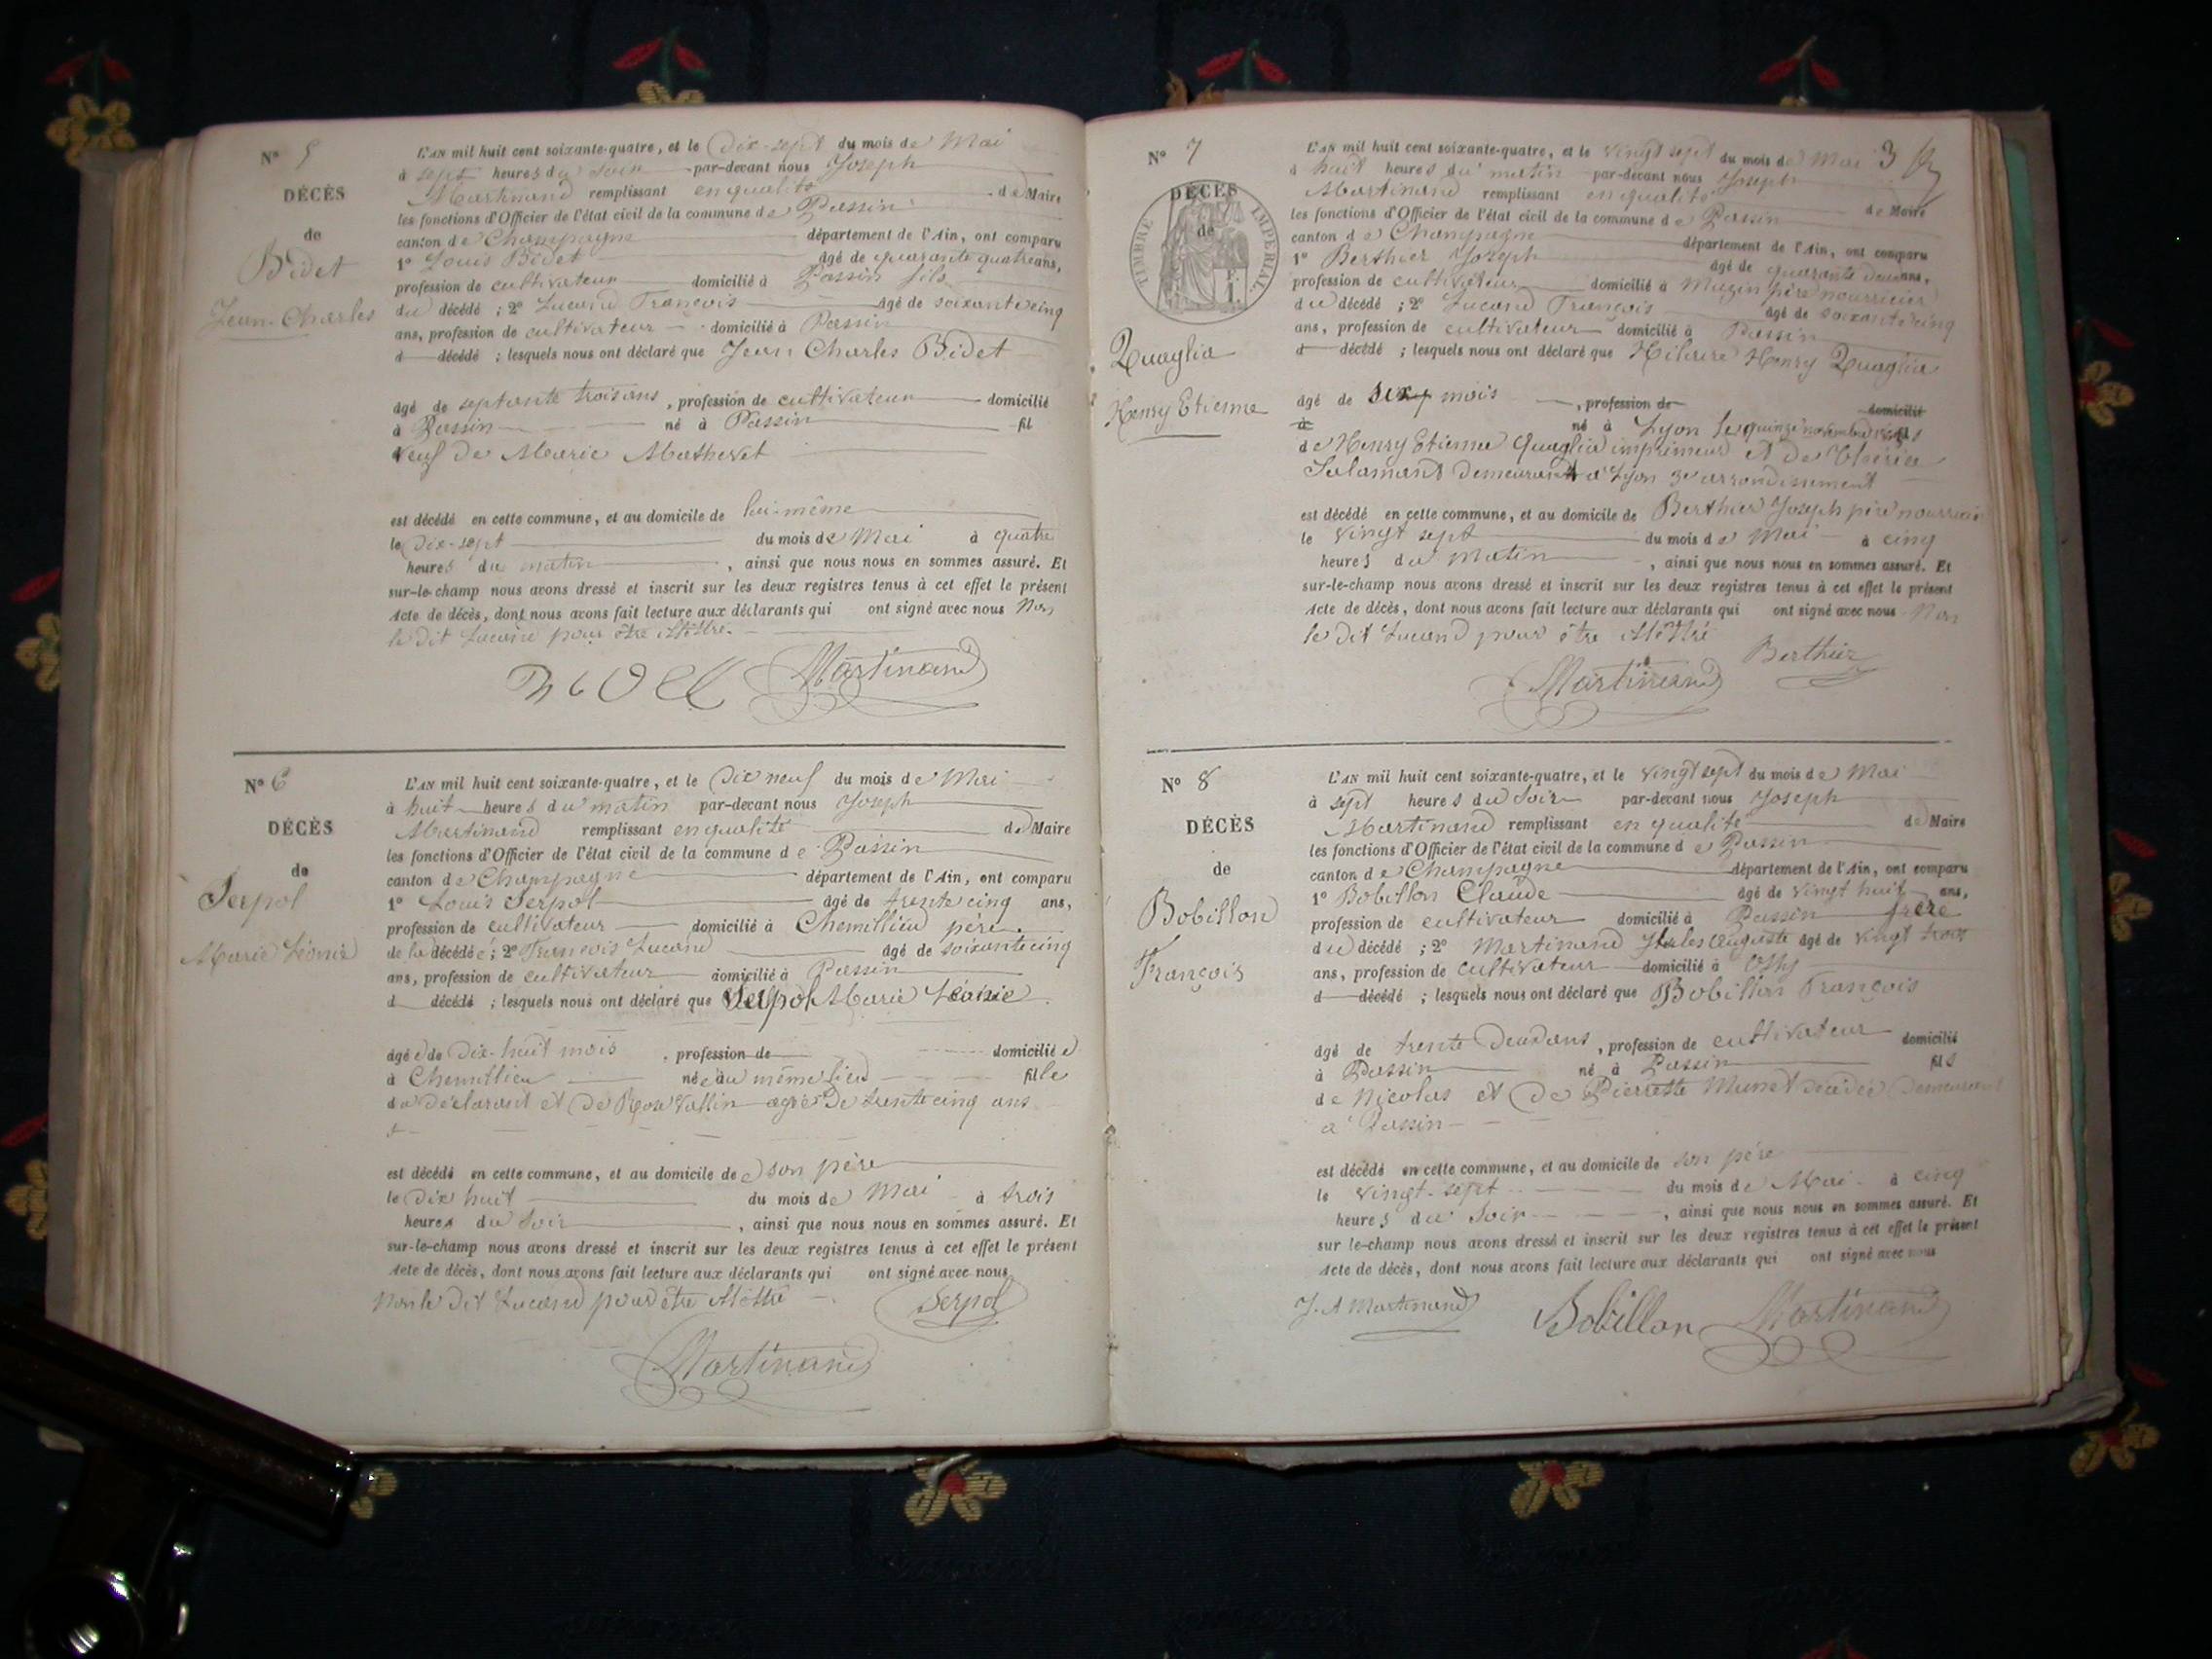 N° 5
DÉCÈS
de
Bidet
Jean Charles
L'AN mil huit cent soixante-quatre, et le Dix-sept du mois de Mai
à sept heures du soir par-devant nous Joseph
Martinand remplissant en qualité de Maire
les fonctions d'Officier de l'état civil de la commune de Passin
canton de Champagne département de l'Ain, ont comparu
1° Louis Bidet âgé de quarante quatre ans,
profession de cultivateur domicilié à Passin fils
du décédé ; 2° Lucand François âgé de soixante cinq
ans, profession de cultivateur domicilié à Passin
d décédé ; lesquels nous ont déclaré que Jean Charles Bidet
âgé de septante trois ans, profession de cultivateur domicilié
à Passin né à Passin fil
veuf de Marie Mathevet
est décédé en cette commune, et au domicile de lui-même
le dix-sept du mois de Mai à quatre
heures du matin, ainsi que nous nous en sommes assuré. Et
sur-le-champ nous avons dressé et inscrit sur les deux registres tenus à cet effet le présent
Acte de décès, dont nous avons fait lecture aux déclarants qui ont signé avec nous Non
le dit Lucand pour être illettré.
Martinand
N° 6
DÉCÈS
de
Serpol
Marie Léonie
L'AN mil huit cent soixante-quatre, et le Dix neuf du mois de Mai
à huit heures du matin par-devant nous Joseph
Martinand remplissant en qualité de Maire
les fonctions d'Officier de l'état civil de la commune de Passin
canton de Champagne département de l'Ain, ont comparu
1° Louis Serpol âgé de trente cinq ans,
profession de cultivateur domicilié à Chemillieu père
de la décédé é ; 2° François Lucand âgé de soixante cinq
ans, profession de cultivateur domicilié à Passin
d décédé ; lesquels nous ont déclaré que Serpol Marie Léonie
âgée de Dix-huit mois, profession de domiciliée
à Chemillieu née au même lieu fille
du déclarant et de Rose Vallin agée de trente cinq ans
est décédé en cette commune, et au domicile de son père
le dix huit du mois de Mai à trois
heures du soir, ainsi que nous nous en sommes assuré. Et
sur-le-champ nous avons dressé et inscrit sur les deux registres tenus à cet effet le présent
Acte de décès, dont nous avons fait lecture aux déclarants qui ont signé avec nous
Non le dit Lucand pour être illettré
Serpol
Martinand
N° 7
DÉCÈS
de
TIMBRE IMPERIAL
Quaglia
Henry Etienne
3
L'AN mil huit cent soixante-quatre, et le vingt sept du mois de Mai
à huit heures du matin par-devant nous Joseph
Martinand remplissant en qualité de Maire
les fonctions d'Officier de l'état civil de la commune de Passin
canton de Champagne département de l'Ain, ont comparu
1° Berthier Joseph âgé de quarante deux ans,
profession de cultivateur domicilié à Muzin père nourricier
du décédé ; 2° Lucand François âgé de soixante cinq
ans, profession de cultivateur domicilié à Passin
d décédé ; lesquels nous ont déclaré que Hilaire Henry Quaglia
âgé de six mois, profession de domicilié
à né à Lyon le quinze novembre fils
de Henry Etienne Quaglia imprimeur et de
Salamard demeurant à Lyon 3e arrondissement
est décédé en cette commune, et au domicile de Berthier Joseph père nourricier
le vingt sept du mois de Mai à cinq
heures du matin, ainsi que nous nous en sommes assuré. Et
sur-le-champ nous avons dressé et inscrit sur les deux registres tenus à cet effet le présent
Acte de décès, dont nous avons fait lecture aux déclarants qui ont signé avec nous Non
le dit Lucand pour être illettré
Berthier
Martinand
N° 8
DÉCÈS
de
Bobillon
François
L'AN mil huit cent soixante-quatre, et le vingt sept du mois de Mai
à sept heures du soir par-devant nous Joseph
Martinand remplissant en qualité de Maire
les fonctions d'Officier de l'état civil de la commune de Passin
canton de Champagne département de l'Ain, ont comparu
1° Bobillon Claude âgé de vingt huit ans,
profession de cultivateur domicilié à Passin frère
du décédé ; 2° Martinand Jules Auguste âgé de vingt trois
ans, profession de cultivateur domicilié à
d décédé ; lesquels nous ont déclaré que Bobillon François
âgé de trente deux ans, profession de cultivateur domicilié
à Passin né à Passin fils
de Nicolas et de Pierrette Munet décédée demeurant
à Passin
est décédé en cette commune, et au domicile de son père
le vingt-sept du mois de Mai à cinq
heures du soir, ainsi que nous nous en sommes assuré. Et
sur le-champ nous avons dressé et inscrit sur les deux registres tenus à cet effet le présent
Acte de décès, dont nous avons fait lecture aux déclarants qui ont signé avec nous
J. A Martinand Bobillon Martinand